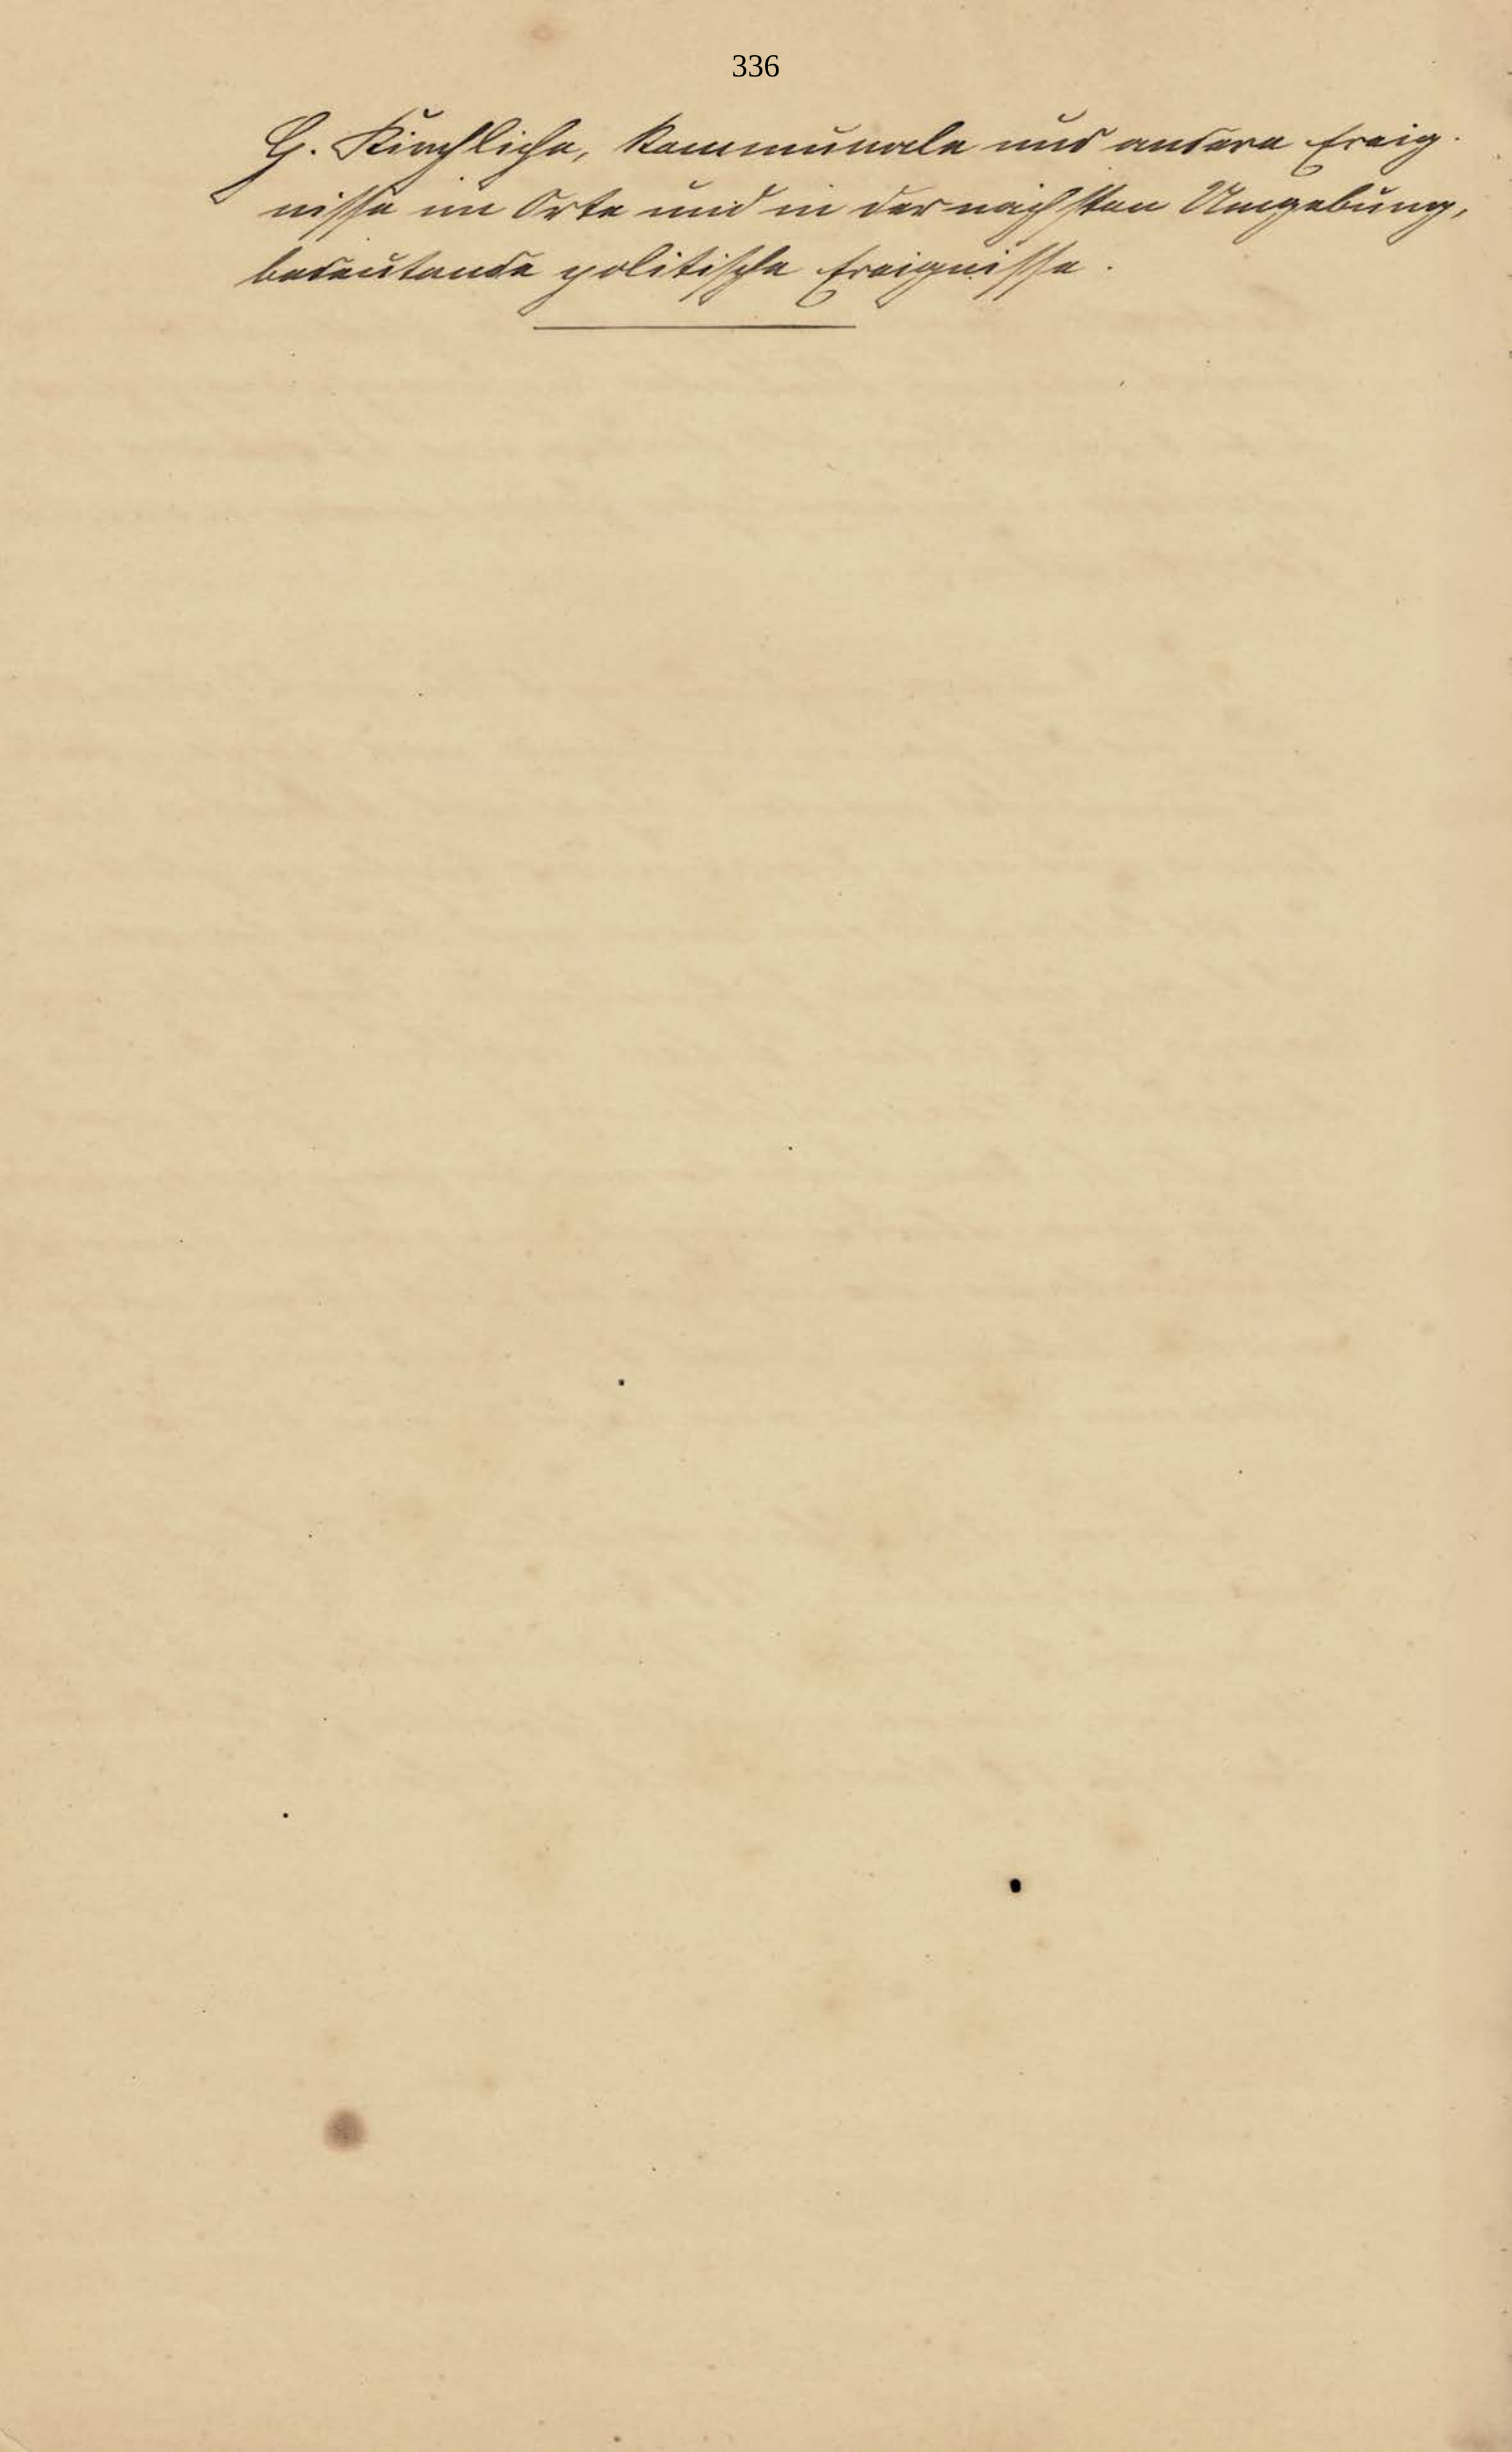 336
G. Kirchliche, kommunale und andere Ereig-
nisse im Orte und in der nächsten Umgebung,
bedeutende politische Ereignisse.